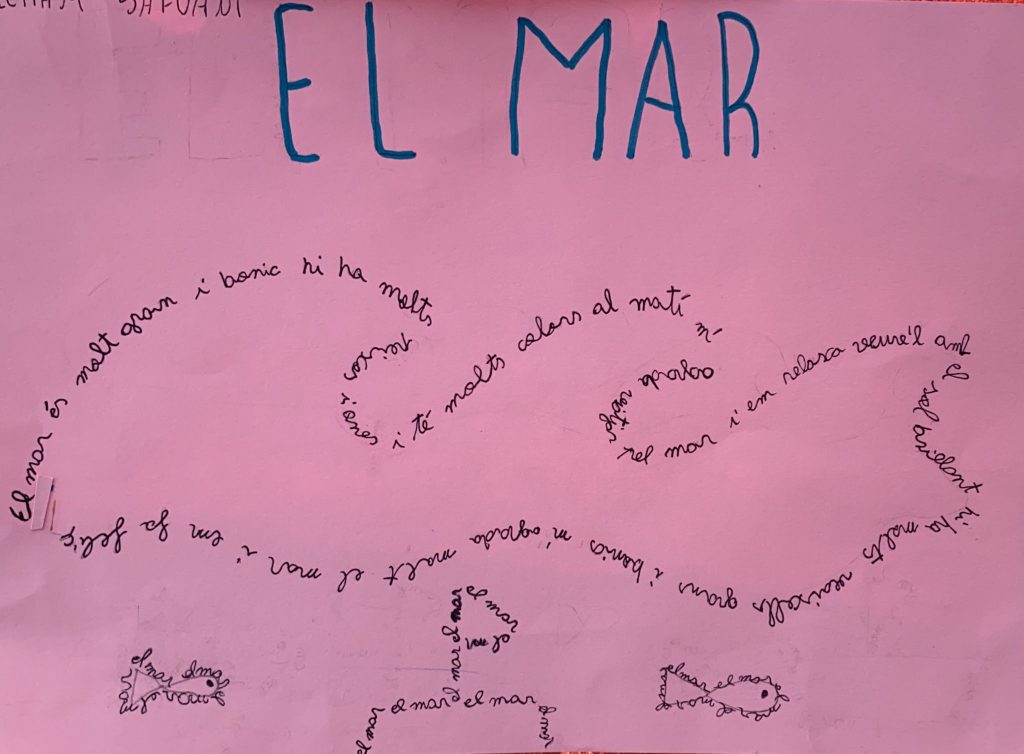 EL MAR
El mar és molt gran i bonic hi ha molts
peixos
i ones
i té molts colors al matí
m'
agrada
pel mar i em relaxa veure'l amb
el sol brillant
hi ha molts vaixells grans i bonics m'agrada molt el mar i em fa feliç
el mar el mar el mar el mar
el mar el mar el mar
el mar el mar el mar el mar
el mar el mar el mar el mar